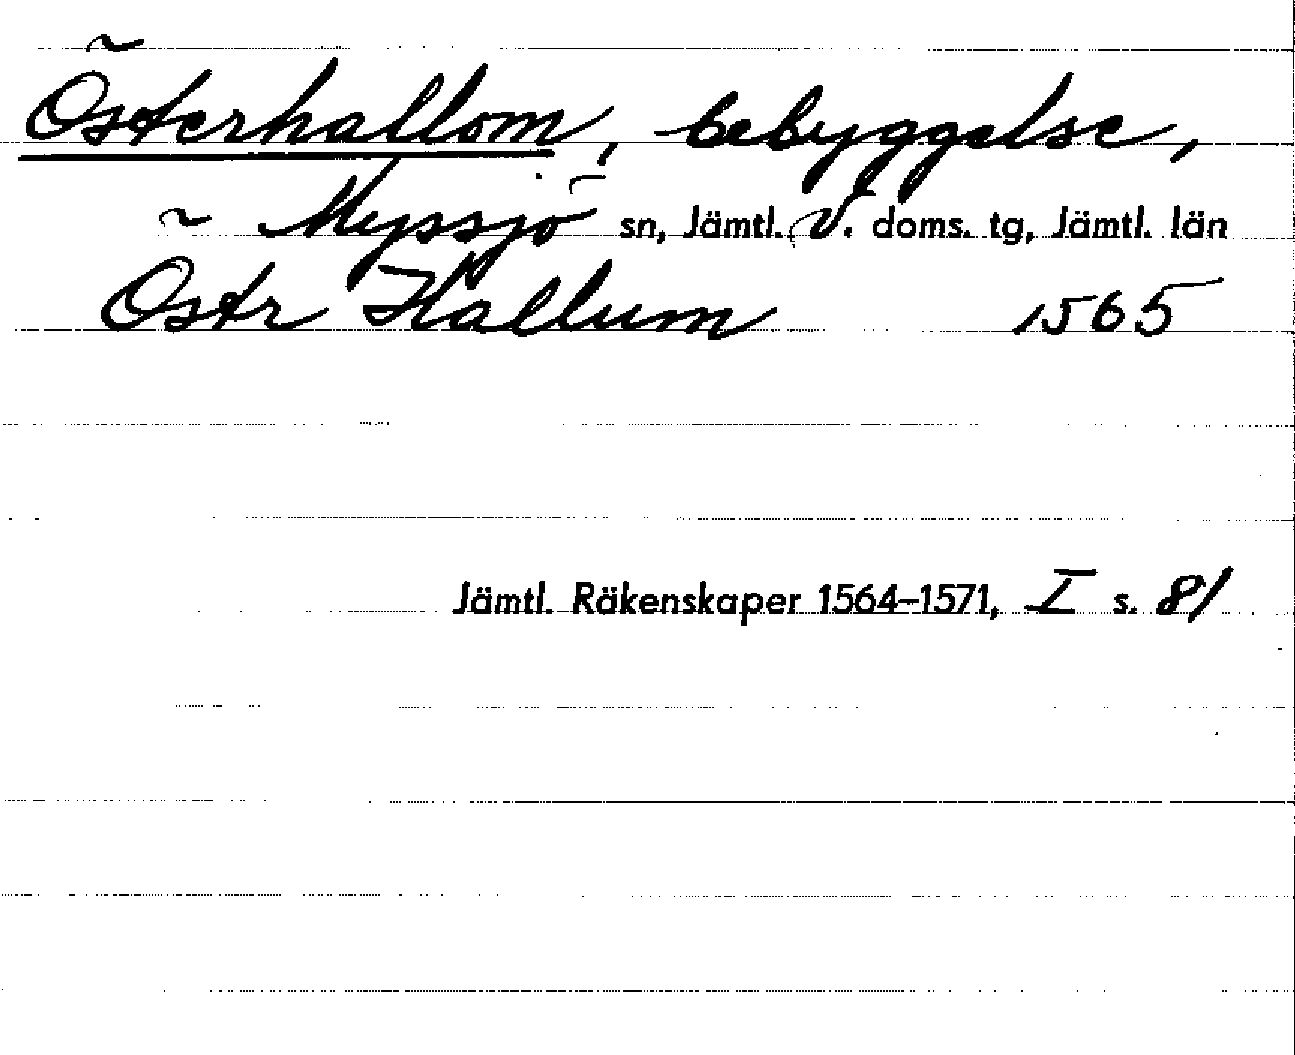 Österhallom, bebyggelse,
Myssjö sn, Jämtl. V. doms. tg, Jämtl. län
Östr Hallum 1565
Jämtl. Räkenskaper 1564–1571, I s. 81